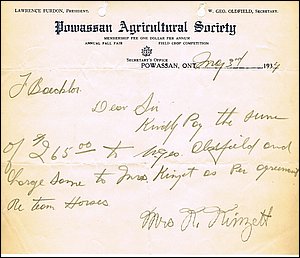 LAWRENCE BURDON, PRESIDENT. W. GEO. OLDFIELD, SECRETARY.
Powassan Agricultural Society
MEMBERSHIP FEE ONE DOLLAR PER ANNUM
ANNUAL FALL FAIR FIELD CROP COMPETITION
SECRETARY'S OFFICE
POWASSAN, ONT. 1934
Dear Sir
Kindly Pay the sum
of $265.00 to Oldfield and
Charge Same to Mrs. as Per agreement
Re team Horses
Mrs